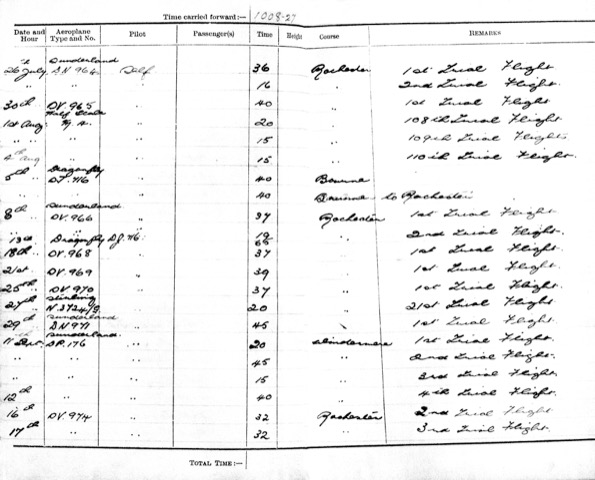 Time carried forward:— 1008-27
Date and Hour Aeroplane Type and No. Pilot Passenger(s) Time Height Course REMARKS
Sunderland
26 July DN 964 Self 36 Rochester 1st Trial Flight
" " " " 16 " 2nd Trial Flight
30th " DV. 965 " 40 " 1st Trial Flight
Half Scale
1st Aug. " 20 " 108th Trial Flight.
" " " 15 " 109th Trial Flight.
4th Aug " 15 " 110th Trial Flight.
Dragonfly
" 40 Bourne
" " " 40 Bourne to Rochester
Sunderland
8th " DV. 966 " 37 Rochester 1st Trial Flight
" " " 19 " 2nd Trial Flight.
Dragonfly DJ. 716 "
18th " DV. 968 " 37 " 1st Trial Flight.
21st " DV. 969 " 39 " 1st Trial Flight.
25th " DV 970 " 37 " 1st Trial Flight.
Stirling
27th " N. 3724/9 " 20 " 21st Trial Flight.
Sunderland
29th DN 971 " 45 " 1st Trial Flight.
Sunderland
11 Sept. DP. 176 " 20 Windermere 1st Trial Flight.
" " " 45 " 2nd Trial Flight.
" " " 15 " 3rd Trial Flight.
12th " " 40 " 4th Trial Flight.
16th DV. 974 " 32 Rochester 2nd Trial Flight
17th " " 32 3rd Trial Flight.
TOTAL TIME:—